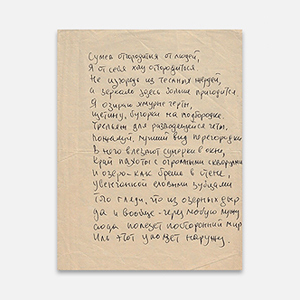 Сумев отгородиться от людей,
Я от себя хочу отгородиться
Не изгородь из тесаных жердей,
а зеркало здесь больше пригодится
Я озираю хмурые черты,
щетину, бугорки на подбородке,
трельяж для разводящейся четы,
пожалуй, лучший вид перегородки
В него влезают сумерки в окне,
край пахоты с огромными скворцами
и озеро - как брешь в стене,
увенчанной еловыми зубцами
Того гляди, что из озерных дыр
да и вообще - через любую лужу
сюда полезет посторонний мир
Иль этот уползет наружу.